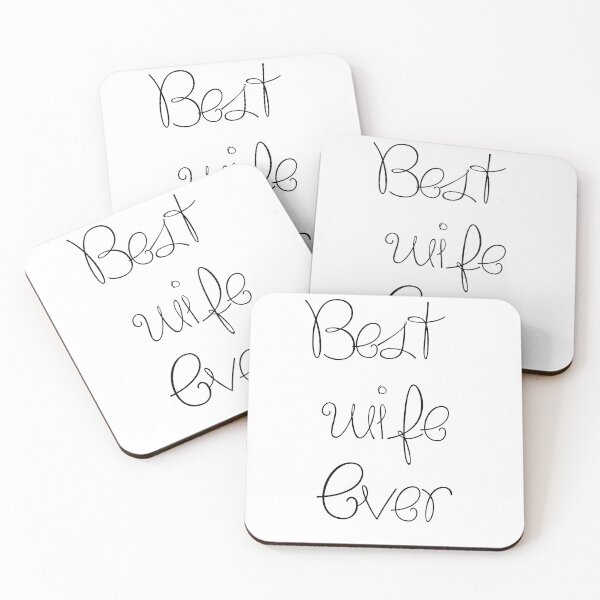 Best
wife
Best
wife
Best
wife
Eve
Best
wife
Ever